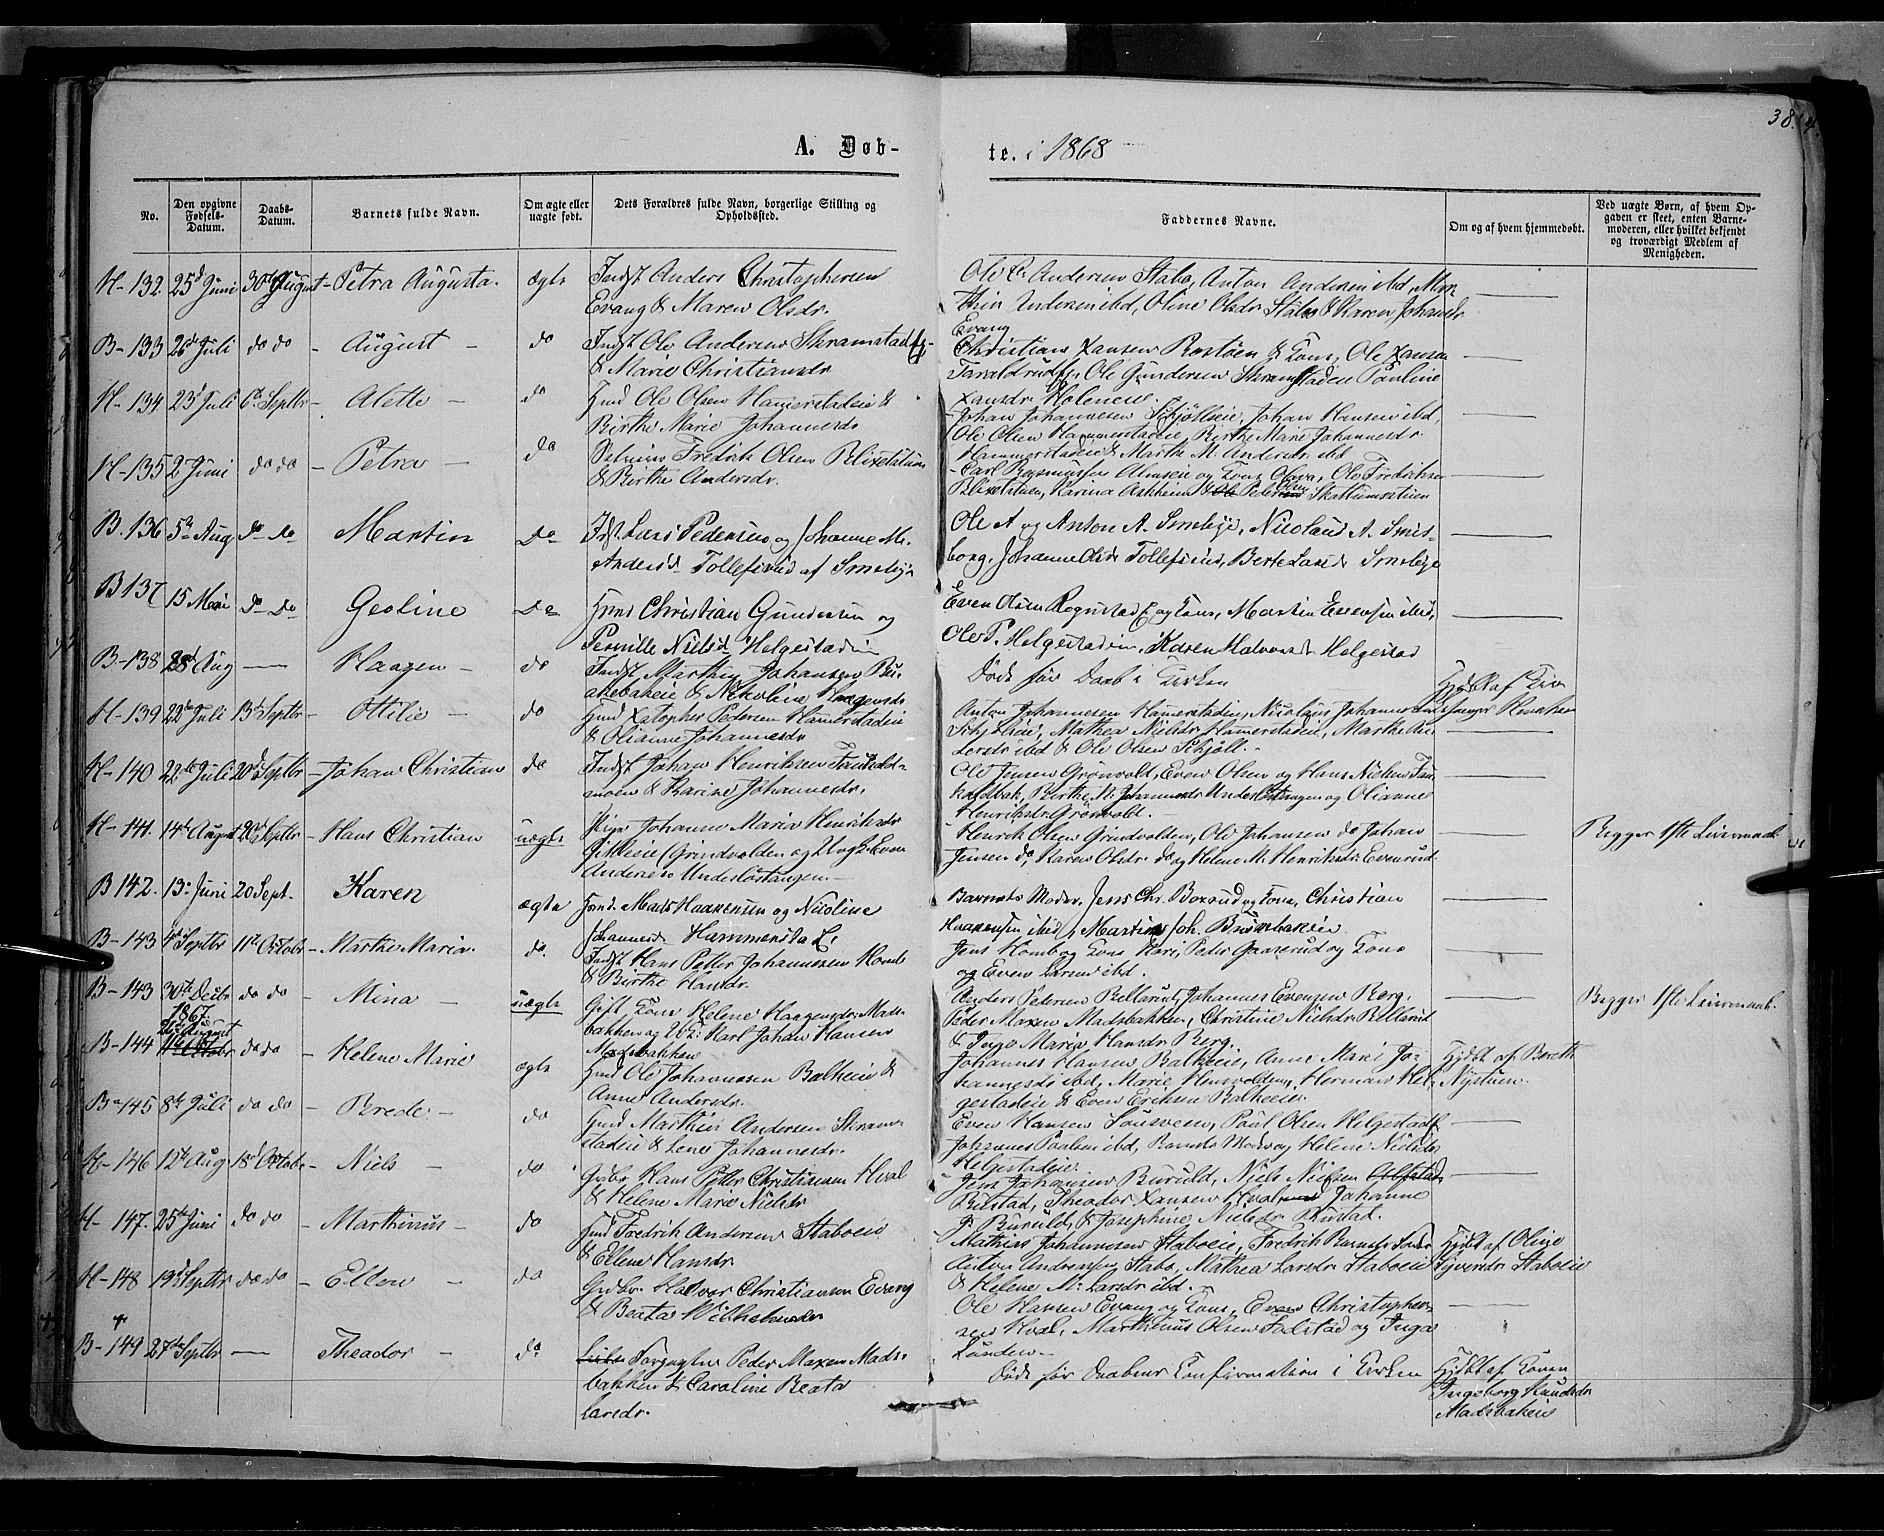 38.
A. Døb-
te. i 1868
No.
Den opgivne Fødsels-Datum.
Daabs-Datum.
Barnets fulde Navn.
Om ægte eller uægte født.
Dets Forældres fulde Navn, borgerlige Stilling og Opholdssted.
Faddernes Navne.
Om og af hvem hjemmedøbt.
Ved uægte Børn, af hvem Opgaven er skeet, enten Barnemoderen, eller hvilket bekjendt og troværdigt Medlem af Menigheden.
H-132. 25d Juni 30t August - Petra Augusta. ægte Indst Anders Christophersen
Evang & Maren Olsdr.
Ole C. Andersen Stabo, Anton Andersen ibd, Mar-
thin Andersen ibd, Oline Olsdr. Stabo & Karen Johansdr
Evang
B-133 26d Juli do do - August - do Indst Ole Andersen Skramstad
& Marie Christiansdr
Christian Hansen Rostøen & Kone, Ole Hansen
Taraldrud, Ole Gundersen Skramstadeie Pauline
Hansdr Holeneie.
H-134 23d Juli 6te Septbr - Alette - do Husmd Ole Olsen Hamerstadeie &
Birthe Marie Johannesdr
Johan Johannesen Skjølleie, Johan Hansen ibd,
Ole Olsen Hammerstadeie, Berthe Marie Johannesdr.
Hammerstadeie & Marthe M. Andersdr ibd
H-135 2 Juni do do - Petra - do Fredrik Olsen Blixetstuen
& Birthe Andersdr.
Carl Rasmussen Almseie og Kone Olava, Ole Fredriksen
Blixetstuen, Karina Askheim & Ole Peder Olsen Skattumsstuen
B. 136 5te Aug do do Martin Do Idst. Lars Pedersen og Johanne M.
Andersd. Tollefsrud af Smeby
Ole A og Anton A. Smeby, Nicolaus A. Smes-
borg, Johanne Olsdr Tollefsrud, Berte Larsd. Smeby
B137 15 Mai do Do Geoline Do Hmd Christian Gundersen og
Pernille Nielsd. Helgestadeie
Even Olsen Rognstad E og Kone, Martin Evensen ibid,
Ole P. Helgestadeie, Karen Halvorsd. Helgestad
B-138 28d Aug - Haagen - do Indst. Marthin Johansen Bu-
akebakeie & Nikoline Haagensdr
Døde før Daab i Kirken
Hjdbt af
H-139 22de Juli 13d Septbr - Ottilie - do Husmd Kristopher Pedersen Hamerstadeie
& Olianne Johannesdr
Anton Johannesen Hamerstadeie, Nicolaus Johannesen
Skjølleie, Mathea Nielsdr Hamerstadeie, Marthe An-
dersdr ibd & Ole Olsen Skjøll. -
H-140 22de Juli 20d Septbr - Johan Christian do Indst Johan Henriksen Fauhald-
moen & Karine Johannesdr.
Ole Jensen Grønvold, Even Olsen og Hans Nielsen Fau-
haldbak, Birthe M. Johannesdr Understangen og Olianne
Henriksdr Grønvold. -
H-141. 14d August 20d Septbr - Hans Christian uægte Pige Johanne Maria Henriksdr
(Grindvolden og Even
Andersen Understangen -
Henrik Olsen Grindvolden, Ole Johansen do Johan
Jensen do, Karen Olsdr. do og Helene M. Henriksdr Evenrud
Begges 1ste Leiermaal
B 142. 13. Juni 20 Sept. Karen ægte Hmd. Mads Haakensen og Nicoline
Johannesd. Hammerstad E:
Barnets Moder, Jens Chr. Boxrud og Kone, Christian
Haakensen ibid, Martin Joh. Brunbakeie
B-143 4d Septbr 11te Octobr - Marthe Maria. do. Indst Hans Petter Johannesen Homb
& Birthe Hansdr.
Jens Homb og Kone Kari, Peder Gaaserud og Kone
og Even Larsen ibd.
B-143 30te Decbr 1867 do do - Mina - uægte Gift Kone Helene Haagensdr. Mads-
bakken og Karl Johan Hansen
Madsbakken
Anders Pedersen Bellerud, Johannes Evensen Berg,
Peder Maxen Madsbakken, Christine Nielsdr. Bellerud
& Inge Maria Hansdr Berg.
Begges 1ste Leiermaal
B-144 26d August do do - Helene Marie ægte Husmd Ole Johannesen Balkeie &
Anne Andersdr.
Johannes Hansen Balkeie, Anne Marie Jo-
hannesdr ibd, Marie Hensvolden, Herman Hel-
gestadeie & Even Eriksen Balkeeie
Hjdbt af Berethe
Nystuen.
B-145 8de Juli do do - Brede - do Husmd Marthin Andersen Skram-
stadeie & Lene Johannesdr.
Even Hansen Tousveen, Paul Olsen Helgestad
Johannes Paulsen ibd, Barnets Moder og Helene Nielsdr
Helgestadeie.
H-146 12te Aug 18d Octobr - Niels - do Grbr Hans Petter Christiansen Hval
& Helene Marie Nielsdr
Jens Johansen Buruld, Niels Nielsen
Bilstad, Theodor Hansen Hval Johanne
J. Buruld, & Josephine Nielsdr Bilstad.
H-147. 25d Juni do do - Marthinus - do Husmd Fredrik Andersen Staboeie
& Ellene Hansdr
Mathias Johannesen Staboeie, Fredrik Barnets Fader
Anton Andersen Stabo, Mathea Larsdr. Staboeie
& Helene M. Larsdr ibd.
Hjdbt af Oline
Syversdr. Staboeie
H-148 19d Septbr do do - Ellen - do Grdbr. Halvor Christiansen Evang
& Beata Wilhelmsdr
Ole Hansen Evang og Kone, Even Christopher-
sen Hval, Marthinus Olsen Falstad og Inga
Lunden -
B-149 27de Septbr - Theodor - do Forpagter Peder Maxen Mads-
bakken & Caroline Beata
Larsdr.
Døde før Daabens Confirmation i Kirken
Hjdbt af Konen
Ingeborg Knudsdr
Madsbakeie